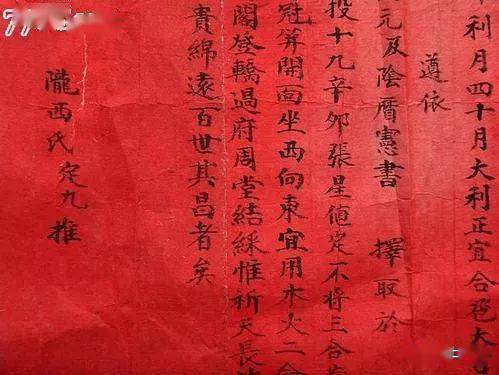 利月四十月大利正宜合巹大
遵依
元及陰曆憲書 擇取於
投十九辛卯張星值定不將三合
冠笄開面坐西向東宜用木火二
閣登轎過府周堂結綵惟祈天長
貴綿遠百世其昌者矣
隴西氏定九推